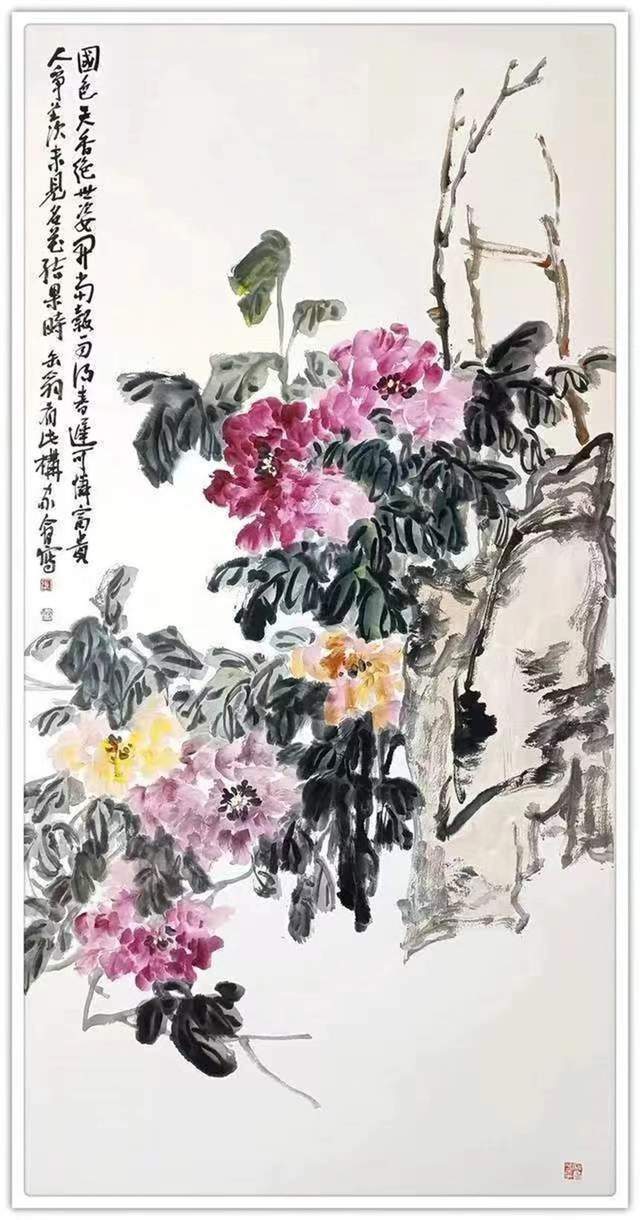 國色天香絕世姿開當穀雨得春遲可憐富貴
人爭羨未見名花結果時缶翁有此構永會寫